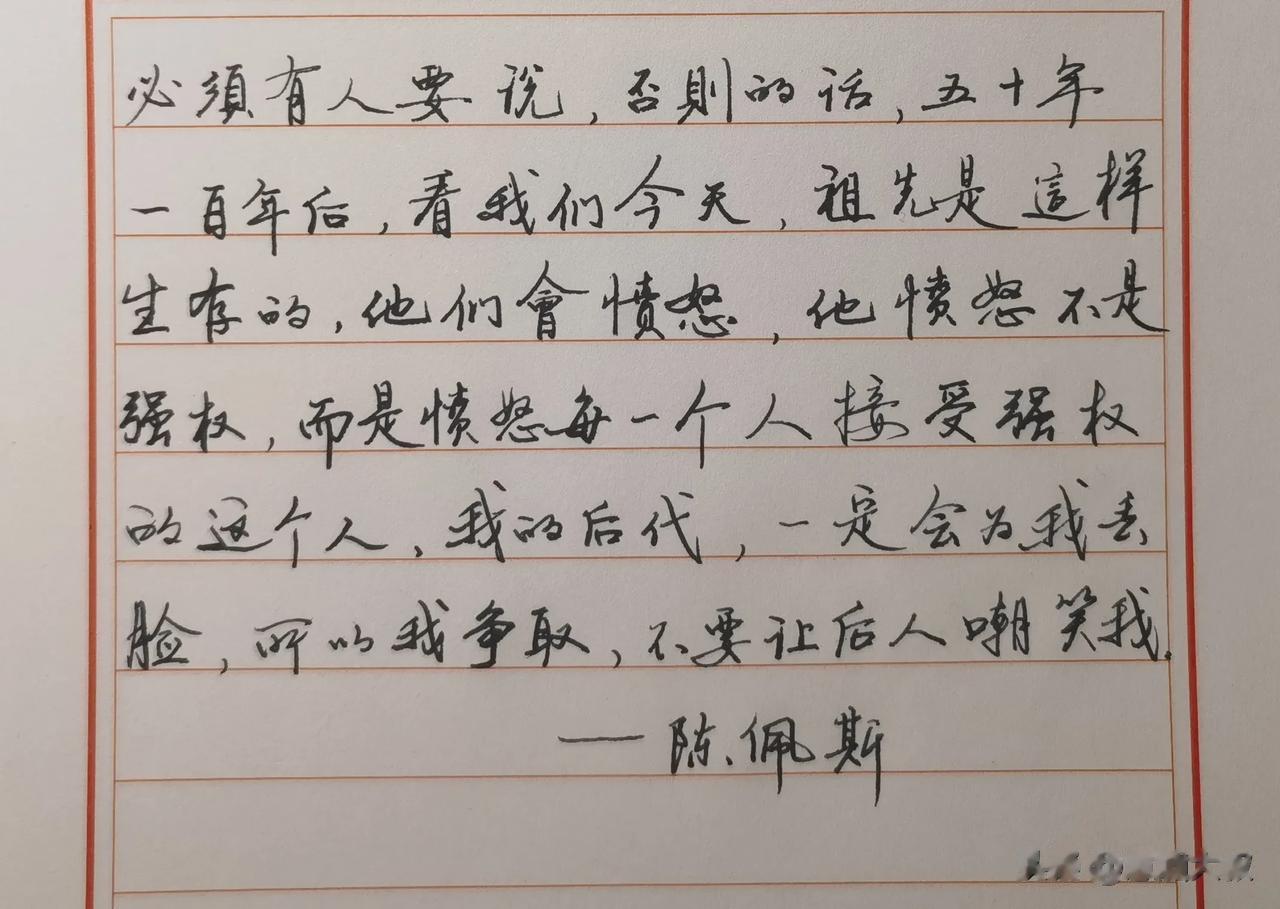 必須有人要说,否則的话,五十年
一百年后,看我们今天,祖先是這样
生存的,他们會愤怒,他愤怒不是
强权,而是愤怒每一个人接受强权
的这个人,我的后代,一定会为我丢
脸,所以我争取,不要让后人嘲笑我。
——陈佩斯